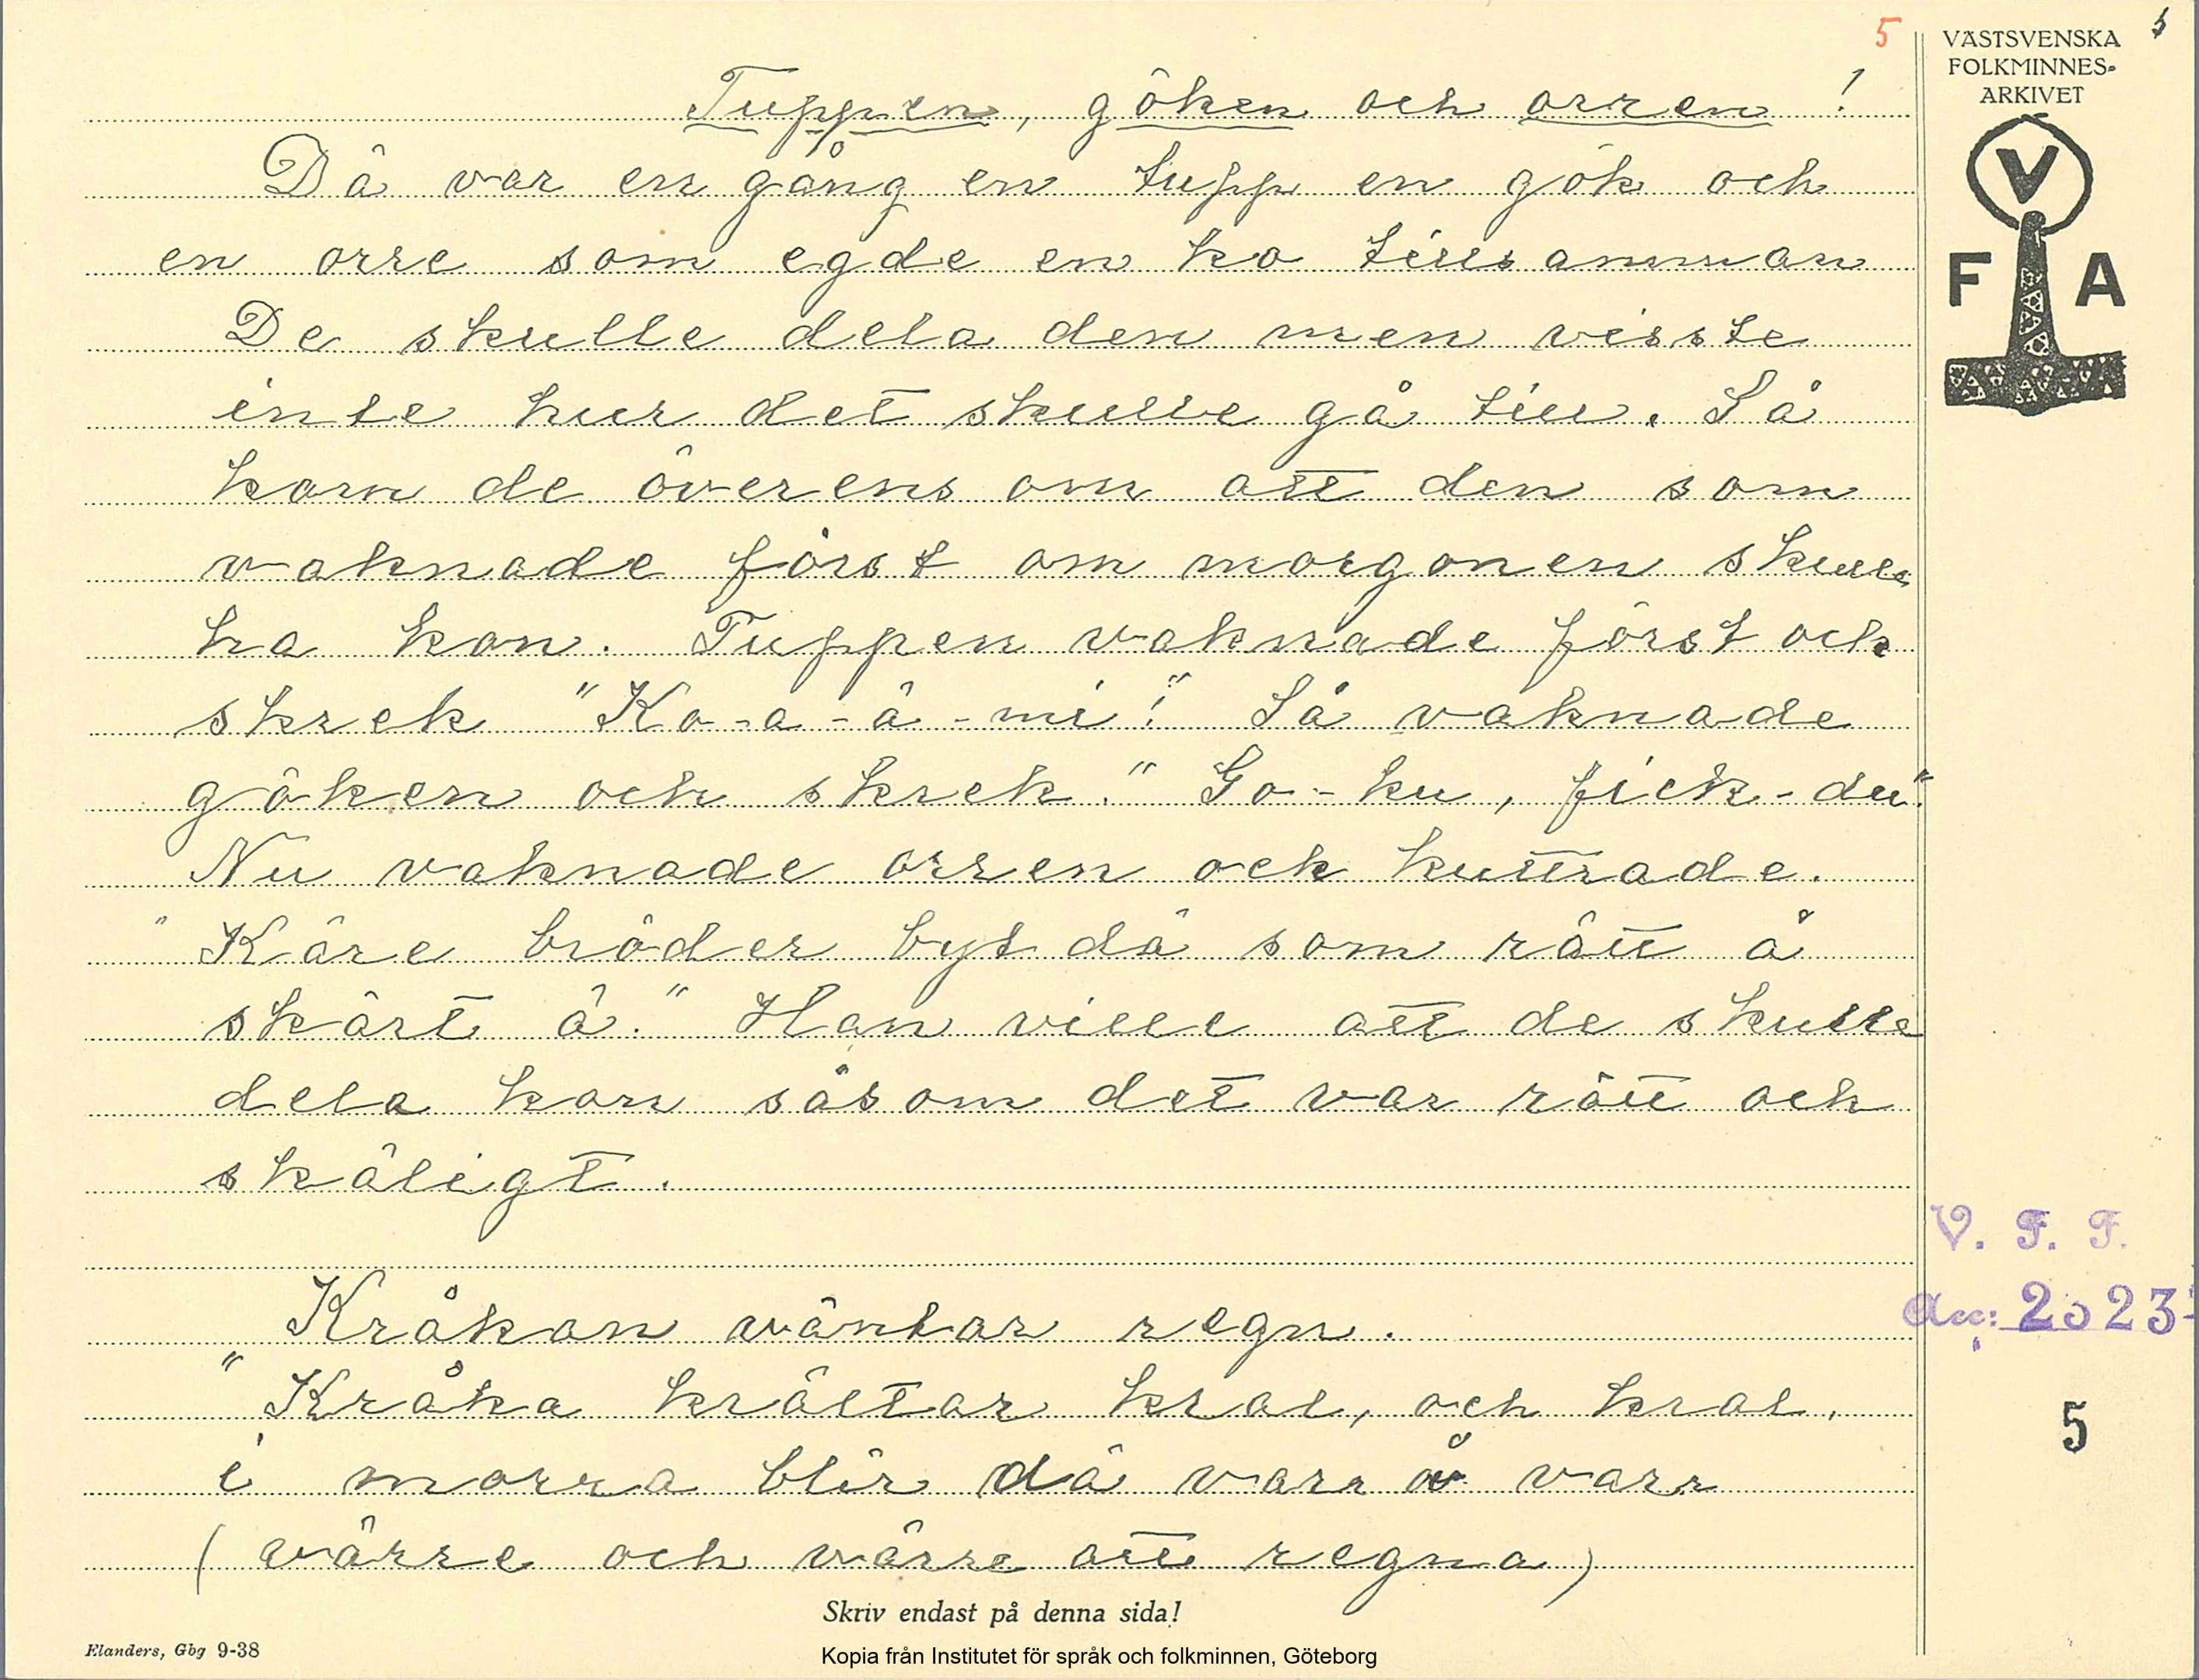 5
5
VÄSTSVENSKA
FOLKMINNES-
ARKIVET
V
F A
Tuppen, göken och orren!
Dä var en gång en tupp en gök och
en orre som egde en ko tillsamman
De skulle dela den men visste
inte hur det skulle gå till. Så
kom de överens om att den som
vaknade först om morgonen skulle
ha kon. Tuppen vaknade först och
skrek "Ko-a-ä-mi!" Så vaknade
göken och skrek. "Go-ku, fick-du".
Nu vaknade orren och kuttrade.
"Käre bröder byt dä som rätt ä
skärt ä." Han ville att de skulle
dela kon såsom det var rätt och
skäligt.
Kråkan väntar regn.
"Kråka krältar kral, och kral,
i morra blir dä varr å varr
(värre och värre att regna)
V. F. F.
Acc: 2023
5
Skriv endast på denna sida!
Elanders, Gbg 9-38
Kopia från Institutet för språk och folkminnen, Göteborg